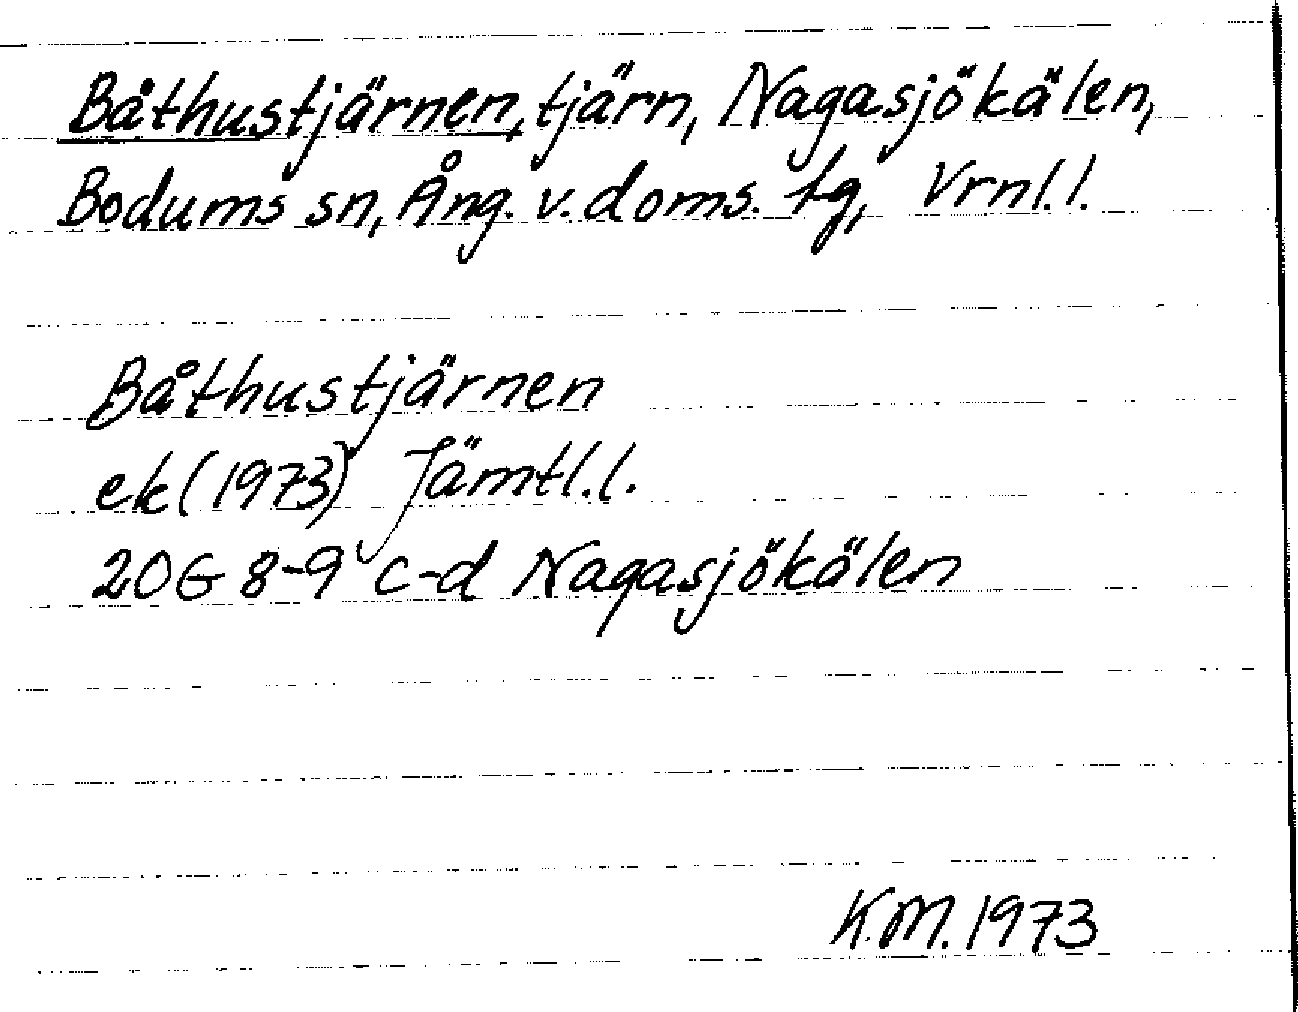 Båthustjärnen, tjärn, Nagasjökälen,
Bodums sn, Ång. v. doms. tg, Vrnl. l.
Båthustjärnen
ek (1973) Jämtl. l.
20G 8-9 c-d Nagasjökälen
K.M. 1973